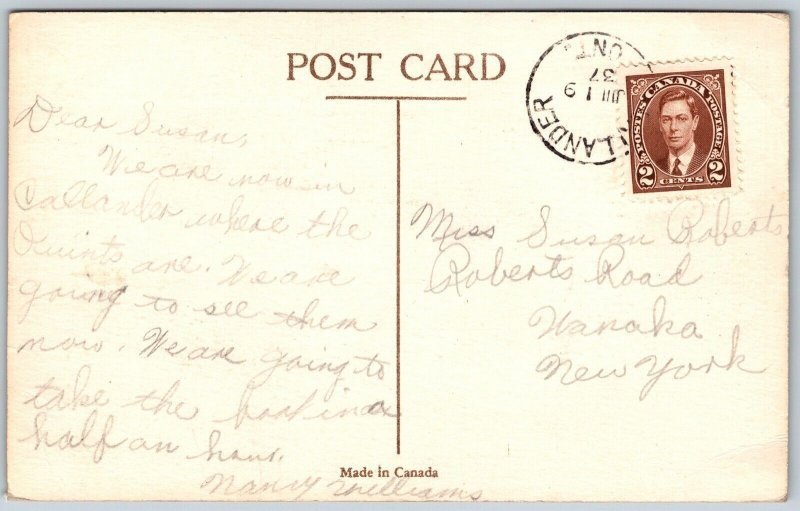 POST CARD
Dear Susan,
We are now in
Callander where the
Quints are. We are
going to see them
now. We are going to
take the boat in a
half an hour.
Nancy Williams
CALLANDER
JUL 19
37
ONT.
POSTES CANADA POSTAGE
2 CENTS 2
Miss Susan Roberts
Roberts Road
Wanaka
New York
Made in Canada